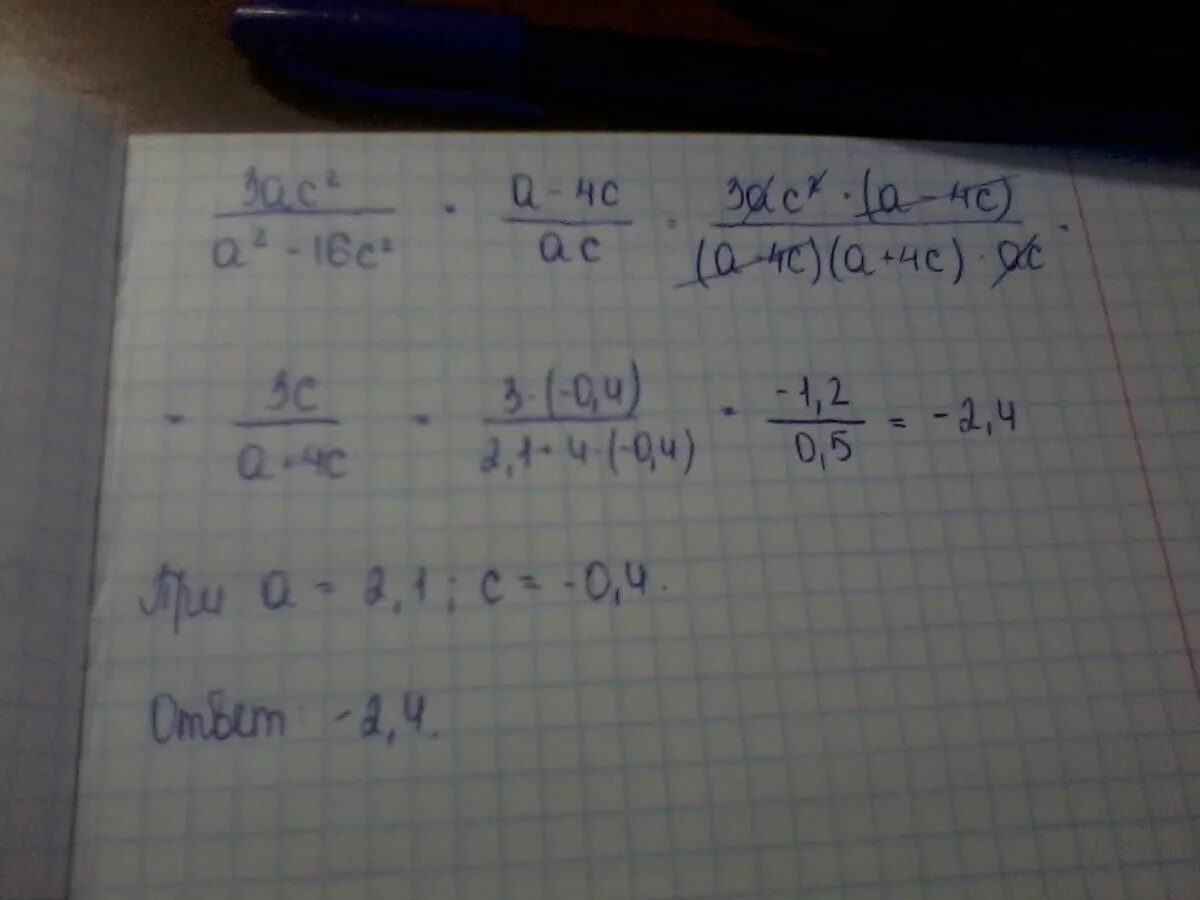 3ac² / a² - 16c² · a - 4c / ac = 3ac² · (a - 4c) / (a - 4c)(a + 4c) · ac =
= 3c / a + 4c = 3 · (-0,4) / 2,1 + 4 · (-0,4) = -1,2 / 0,5 = -2,4
При a = 2,1 ; c = -0,4.
Ответ: -2,4.